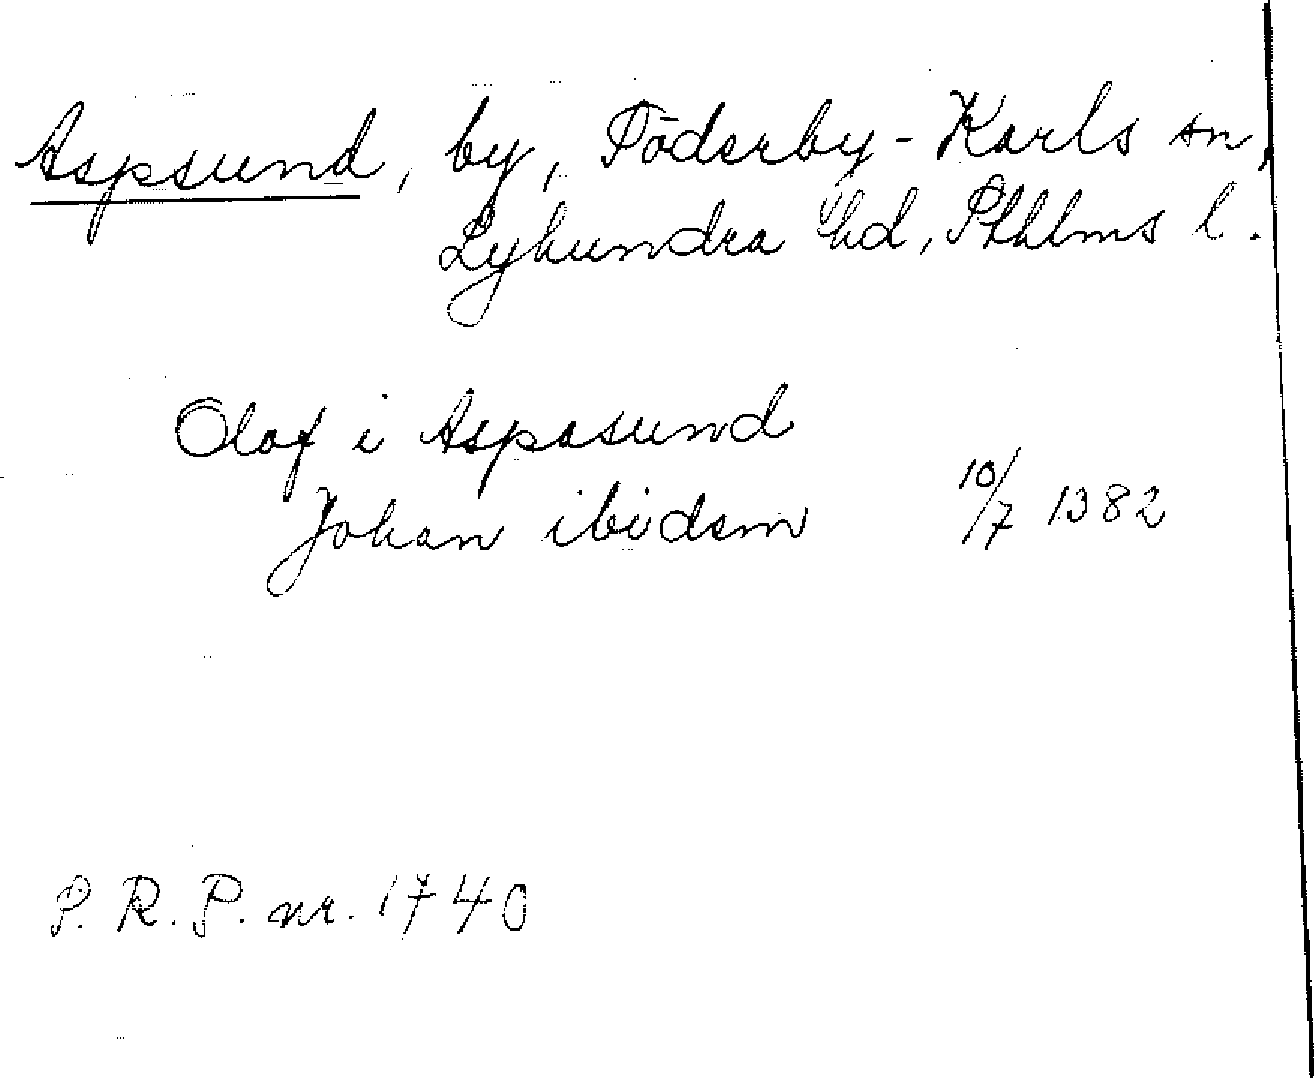 Aspsund, by, Söderby-Karls sn,
Lyhundra hd, Sthlms l.
Olof i Aspasund
Johan ibidem 10/7 1382
S. R. P. nr. 1740